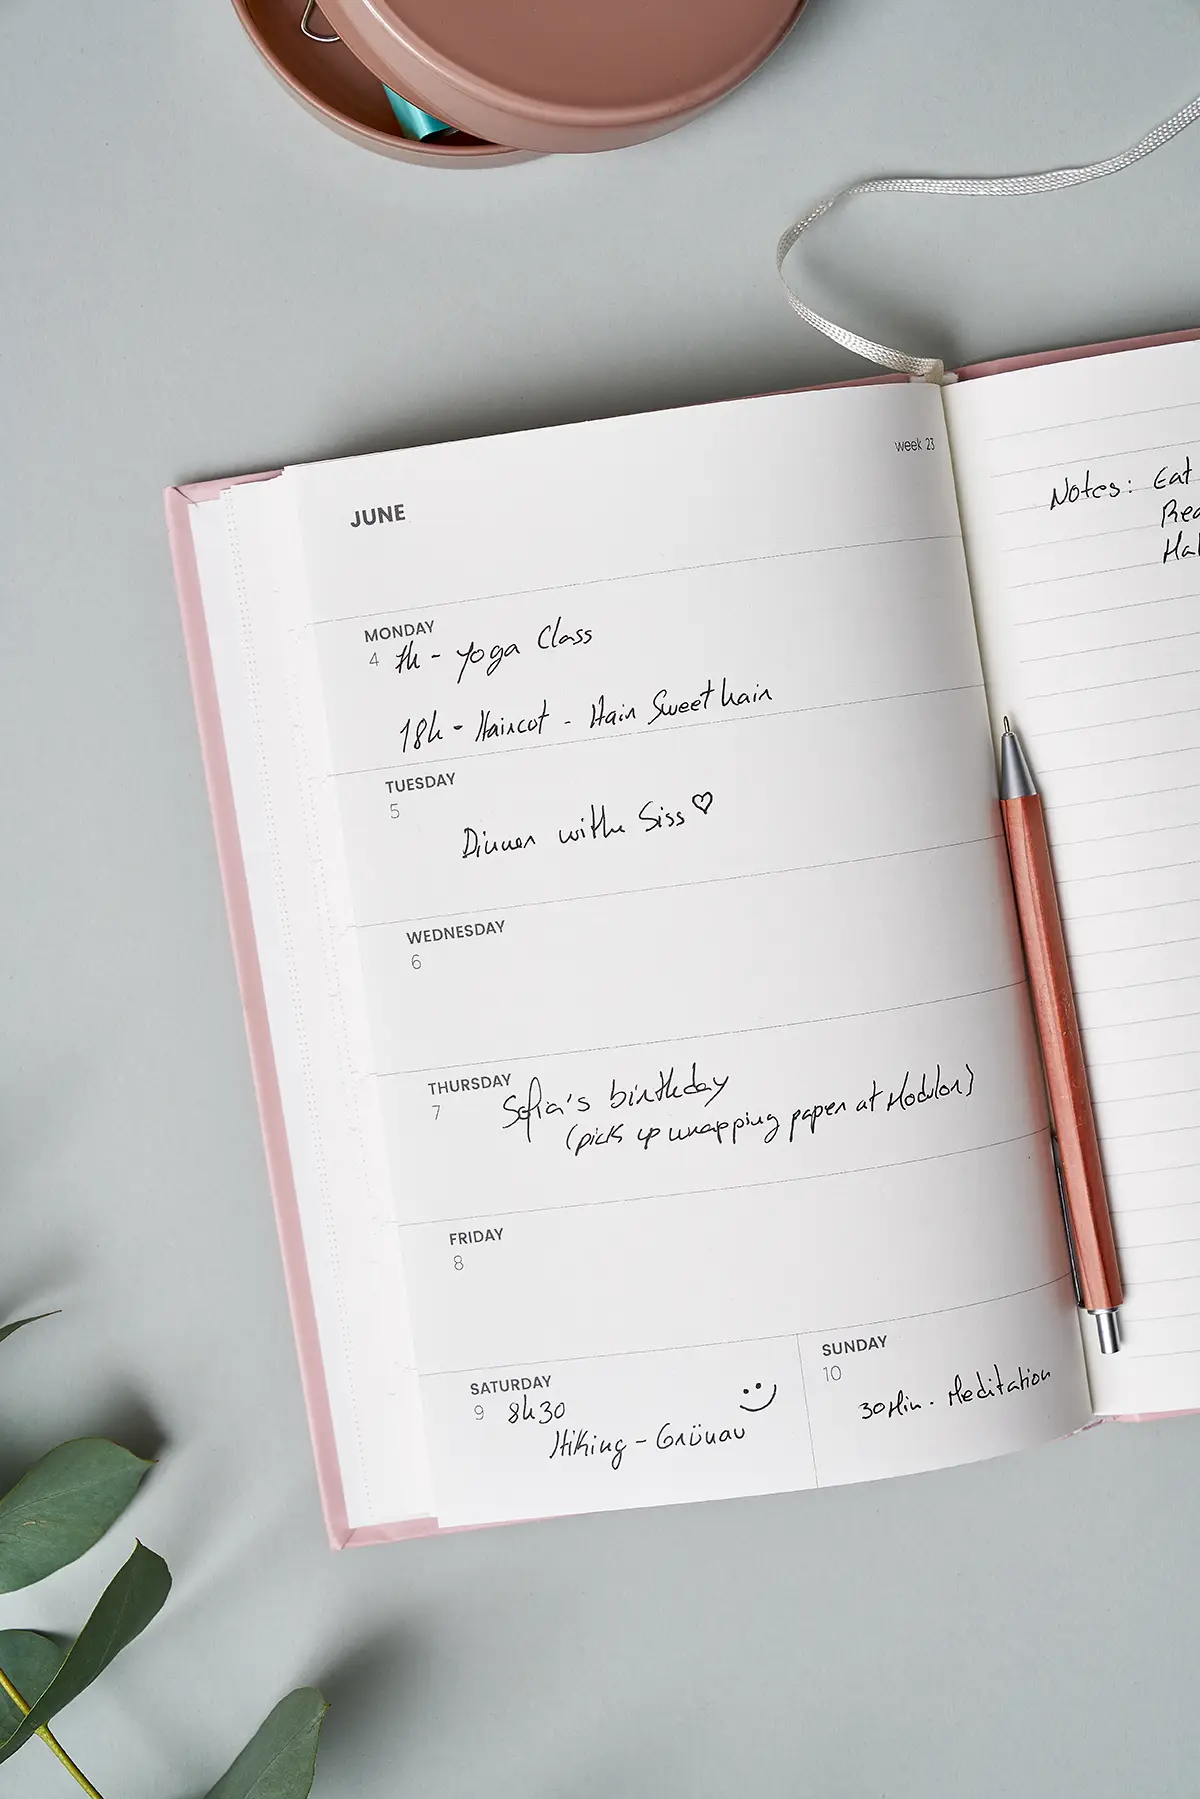 week 23
JUNE
MONDAY
4 7h - Yoga Class
18h - Haircot - Hair Sweet hair
TUESDAY
5
Dinner with Siss ♡
WEDNESDAY
6
THURSDAY
7 Sofia's birthday
(pick up wrapping paper at Modulor)
FRIDAY
8
SATURDAY
9 8h30
Hiking - Grünau
SUNDAY
10
30 Min. Meditation
Notes: Eat